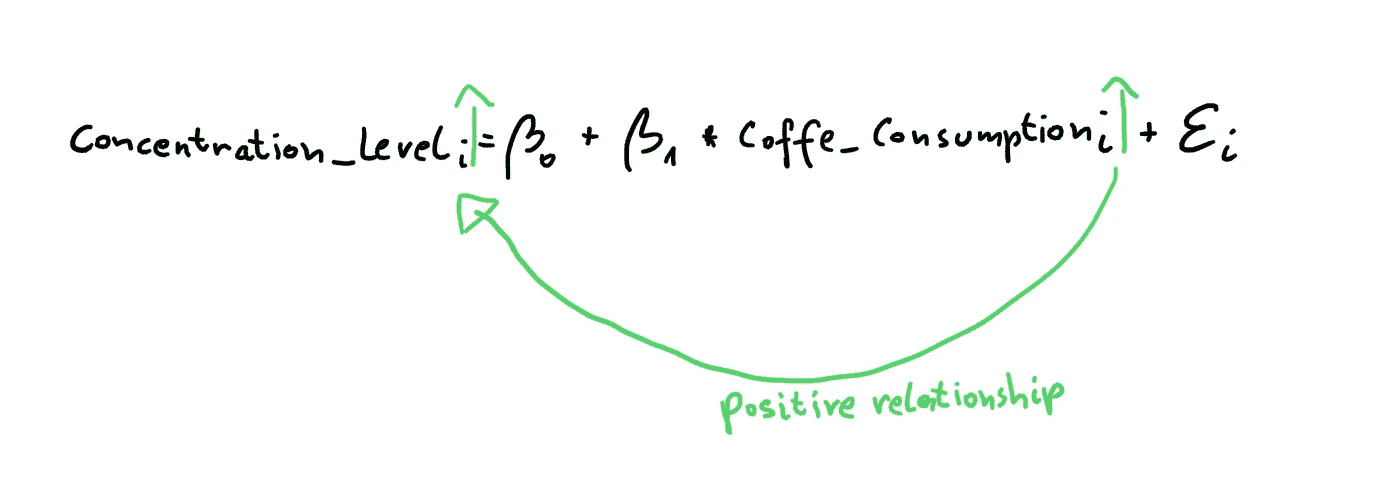 Concentration_Level i = β₀ + β₁ * Coffe_Consumption i + Ɛ i
positive relationship